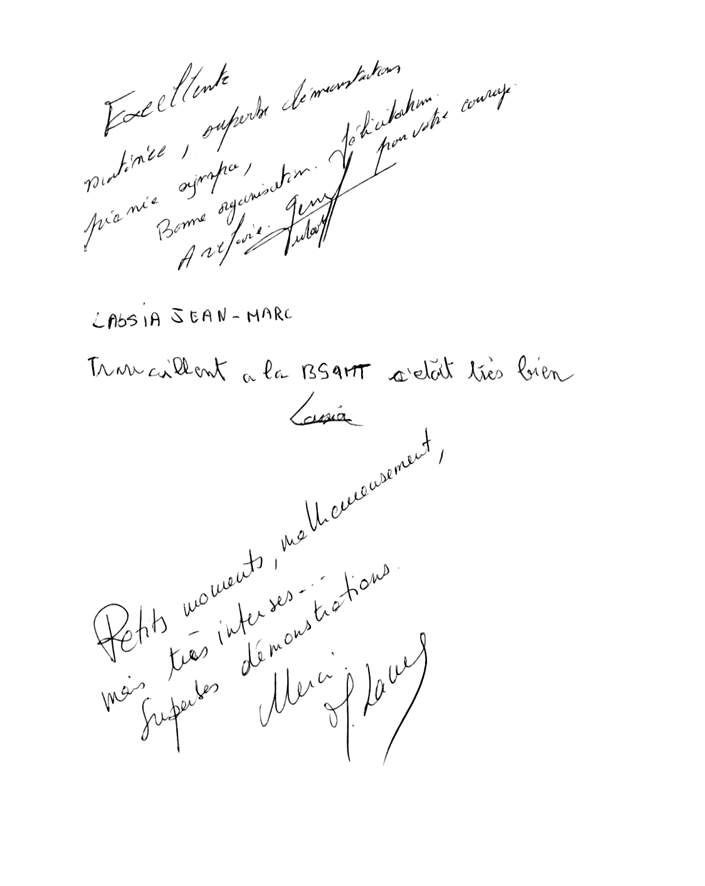 Excellente
matinée, superbe démonstration
pique nique sympa,
Bonne organisation. Félicitation pour votre courage.
A refaire.
CASSIA JEAN-MARC
Travaillent a la BSAMT c'etait très bien
Cassia
Petits moments, malheureusement,
mais très intenses...
Superbes démonstrations.
Merci.